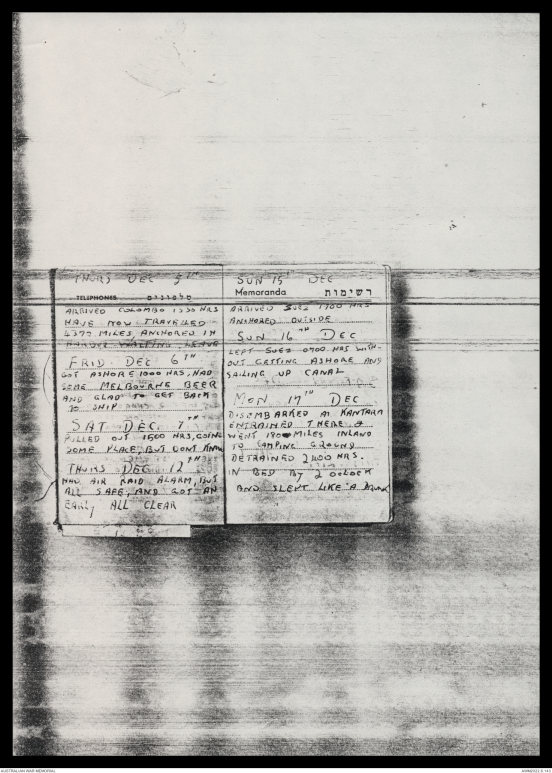 THURS DEC 5TH
TELEPHONES טלפונים
ARRIVED COLOMBO 1330 HRS
HAVE NOW TRAVELLED
4377 MILES, ANCHORED IN
HARBOUR WAITING LEAVE
FRID. DEC. 6TH
GOT ASHORE 1000 HRS, HAD
SOME MELBOURNE BEER
AND GLAD TO GET BACK
TO SHIP
SAT DEC. 7TH
PULLED OUT 1500 HRS, GOING
SOME PLACE, BUT DONT KNOW
THURS DEC 12TH
HAD AIR RAID ALARM, BUT
ALL SAFE, AND GOT AN
EARLY ALL CLEAR
SUN 15TH DEC
Memoranda רשימות
ARRIVED SUEZ 1700 HRS
ANCHORED OUTSIDE
SUN 16TH DEC
LEFT SUEZ 0700 HRS WITH-
OUT GETTING ASHORE AND
SAILING UP CANAL
MON 17TH DEC
DISEMBARKED AT KANTARA
ENTRAINED THERE &
WENT MILES INLAND
TO CAMPING GROUND
DETRAINED 2400 HRS.
IN BED BY 2 OCLOCK
AND SLEPT LIKE A DRUNK
AUSTRALIAN WAR MEMORIAL